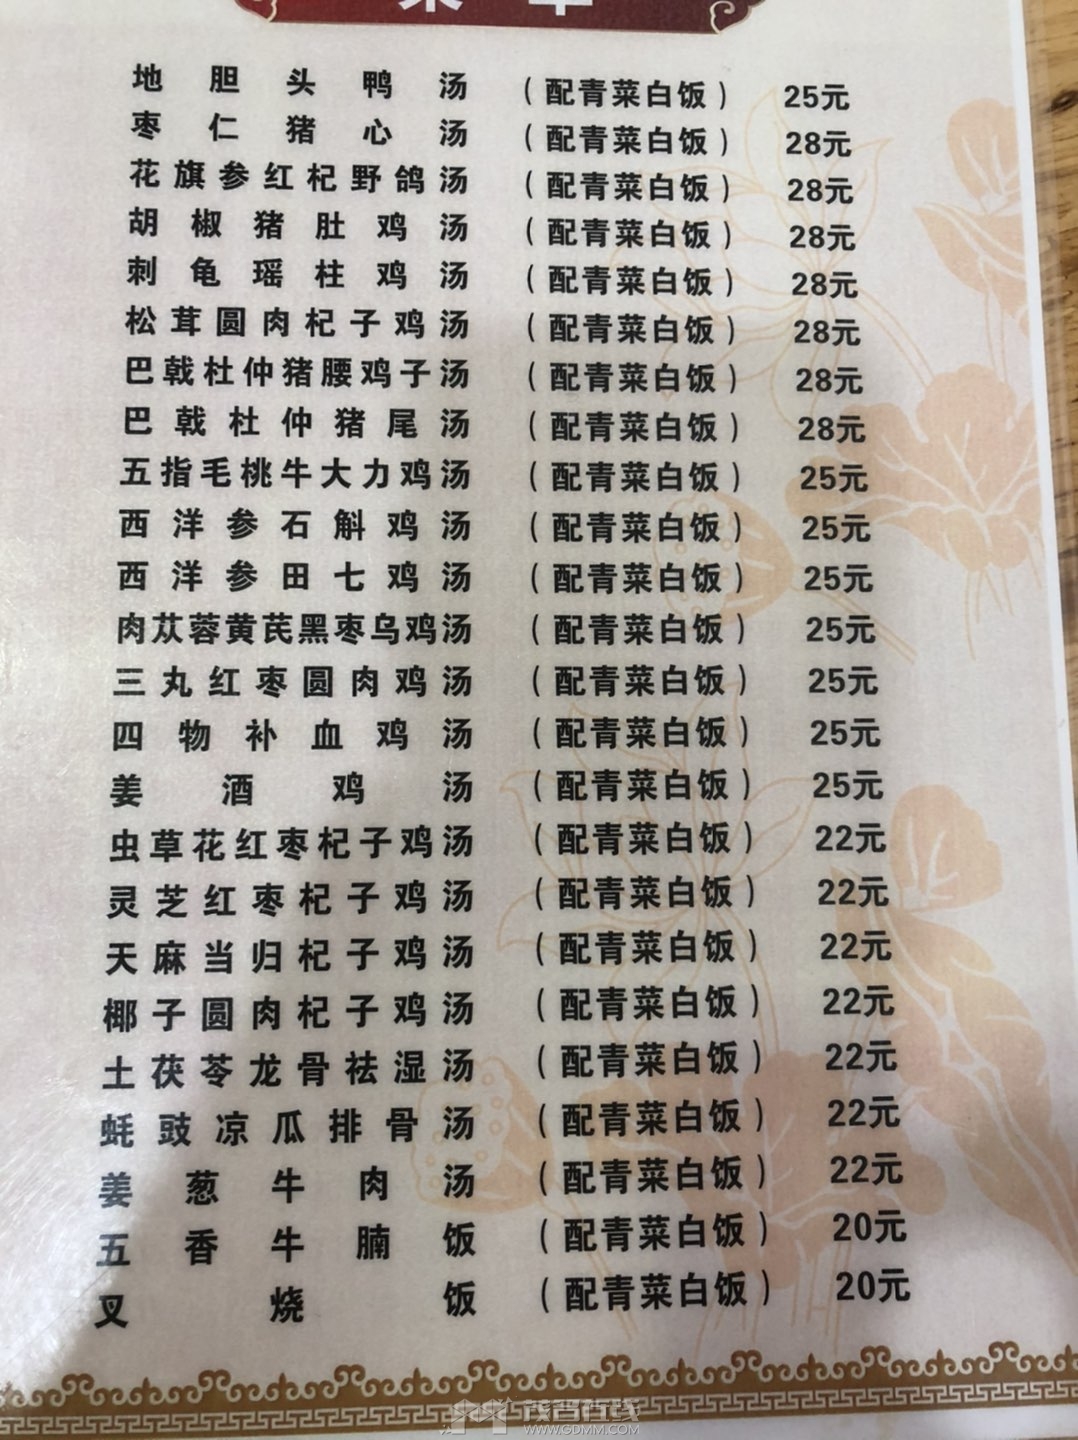 菜单
地胆头鸭汤（配青菜白饭） 25元
枣仁猪心汤（配青菜白饭） 28元
花旗参红杞野鸽汤（配青菜白饭） 28元
胡椒猪肚鸡汤（配青菜白饭） 28元
刺龟瑶柱鸡汤（配青菜白饭） 28元
松茸圆肉杞子鸡汤（配青菜白饭） 28元
巴戟杜仲猪腰鸡子汤（配青菜白饭） 28元
巴戟杜仲猪尾汤（配青菜白饭） 28元
五指毛桃牛大力鸡汤（配青菜白饭） 25元
西洋参石斛鸡汤（配青菜白饭） 25元
西洋参田七鸡汤（配青菜白饭） 25元
肉苁蓉黄芪黑枣乌鸡汤（配青菜白饭） 25元
三丸红枣圆肉鸡汤（配青菜白饭） 25元
四物补血鸡汤（配青菜白饭） 25元
姜酒鸡汤（配青菜白饭） 25元
虫草花红枣杞子鸡汤（配青菜白饭） 22元
灵芝红枣杞子鸡汤（配青菜白饭） 22元
天麻当归杞子鸡汤（配青菜白饭） 22元
椰子圆肉杞子鸡汤（配青菜白饭） 22元
土茯苓龙骨祛湿汤（配青菜白饭） 22元
蚝豉凉瓜排骨汤（配青菜白饭） 22元
姜葱牛肉汤（配青菜白饭） 22元
五香牛腩饭（配青菜白饭） 20元
叉烧饭（配青菜白饭） 20元
茂名在线
WWW.GDMM.COM